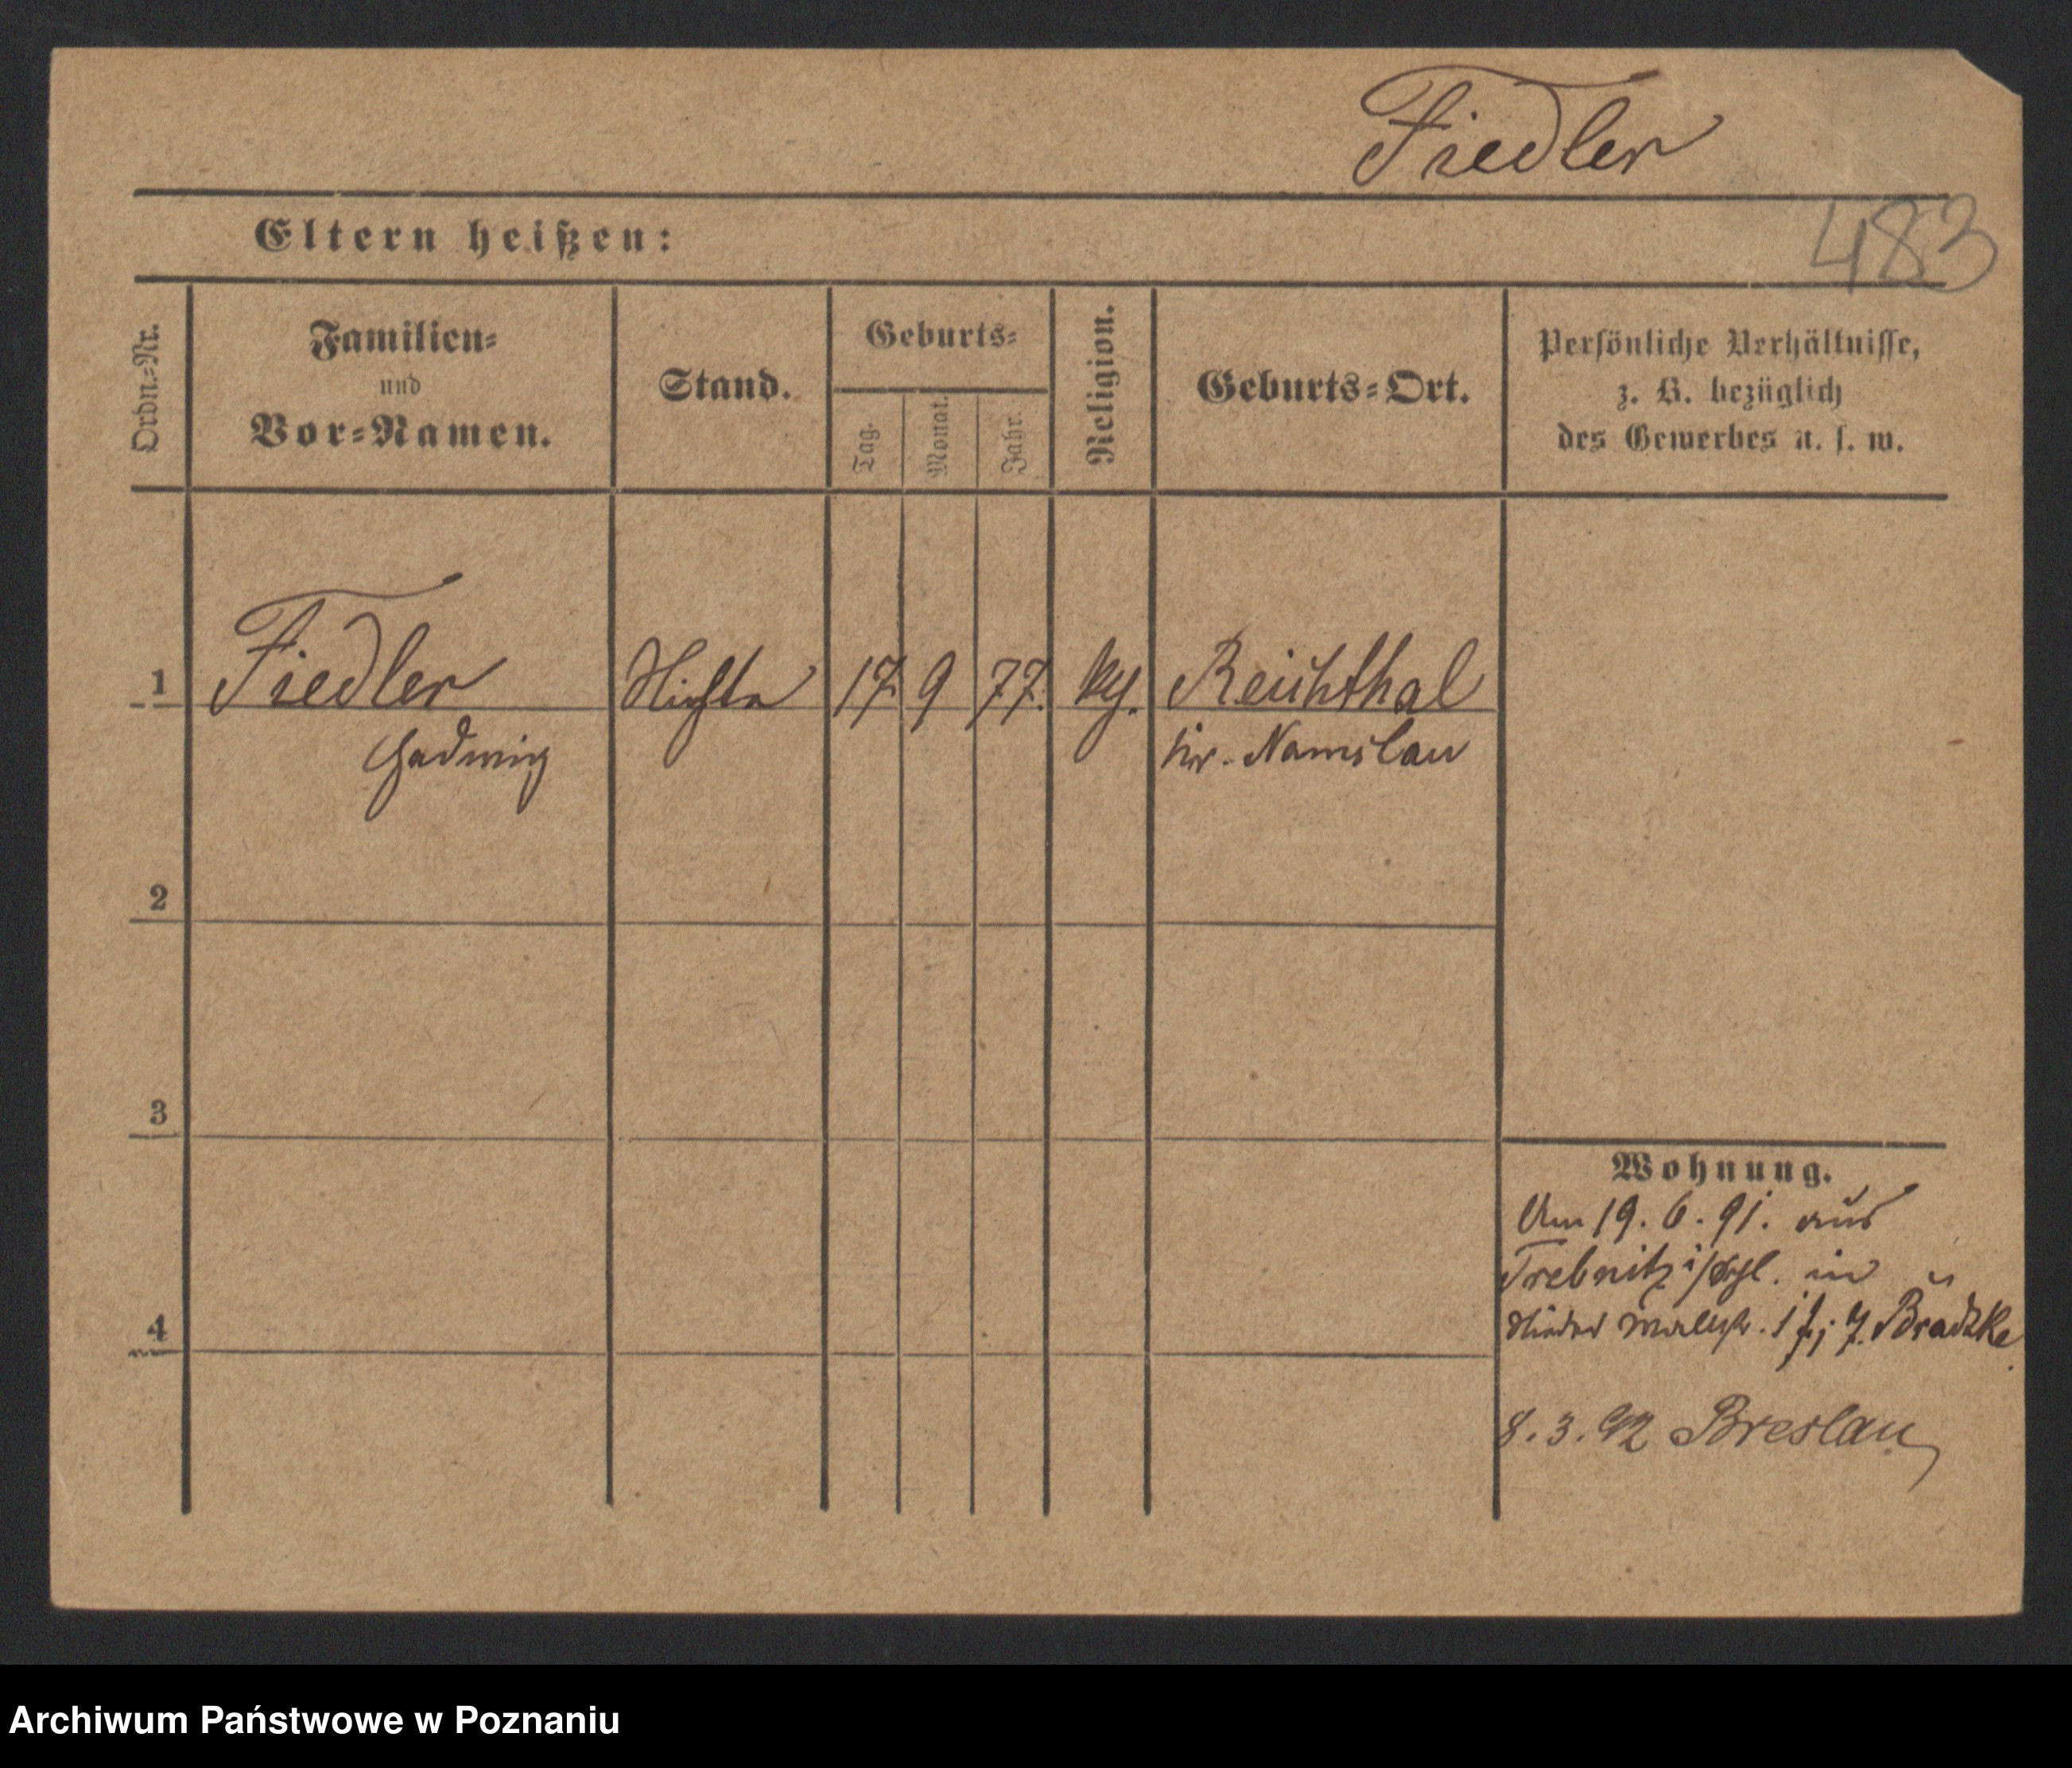 Fiedler
483
Eltern heißen:
Ordn.-Nr.
Familien-
und
Vor-Namen.
Stand.
Geburts-
Tag.
Monat.
Jahr.
Religion.
Geburts-Ort.
Persönliche Verhältnisse,
z. B. bezüglich
des Gewerbes u. s. w.
1
Fiedler
Hedwig
Nichte
17. 9 77.
Reichthal
Kr. Namslau
2
3
4
Wohnung.
Am 19. 6. 91. aus
Trebnitz i/Schl. in
Wallstr. 1
8. 3. 92 Breslau
Archiwum Państwowe w Poznaniu